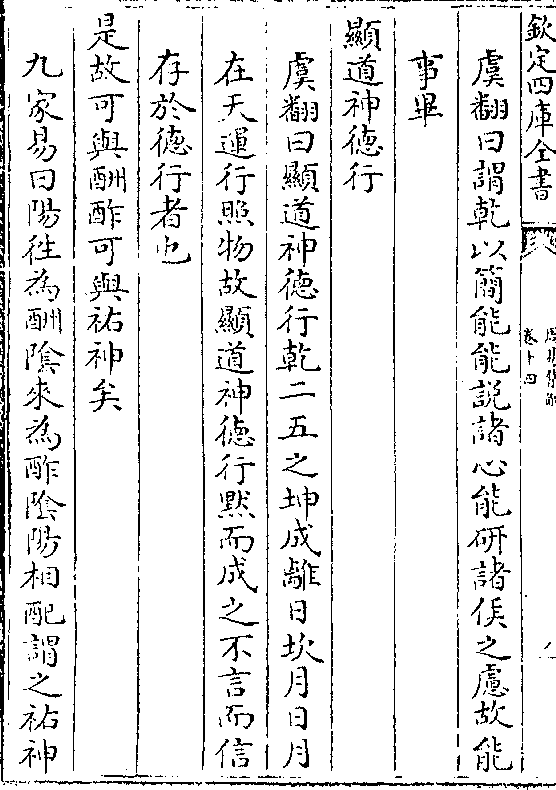 欽定四庫全書
卷十四
虞翻曰謂乾以簡能能説諸心能研諸侯之慮故能
事畢
顯道神德行
虞翻曰顯道神德行乾二五之坤成離日坎月日月
在天運行照物故顯道神德行黙而成之不言而信
存於德行者也
是故可與酬酢可與祐神矣
九家易曰陽徃為酬隂來為酢隂陽相配謂之祐神